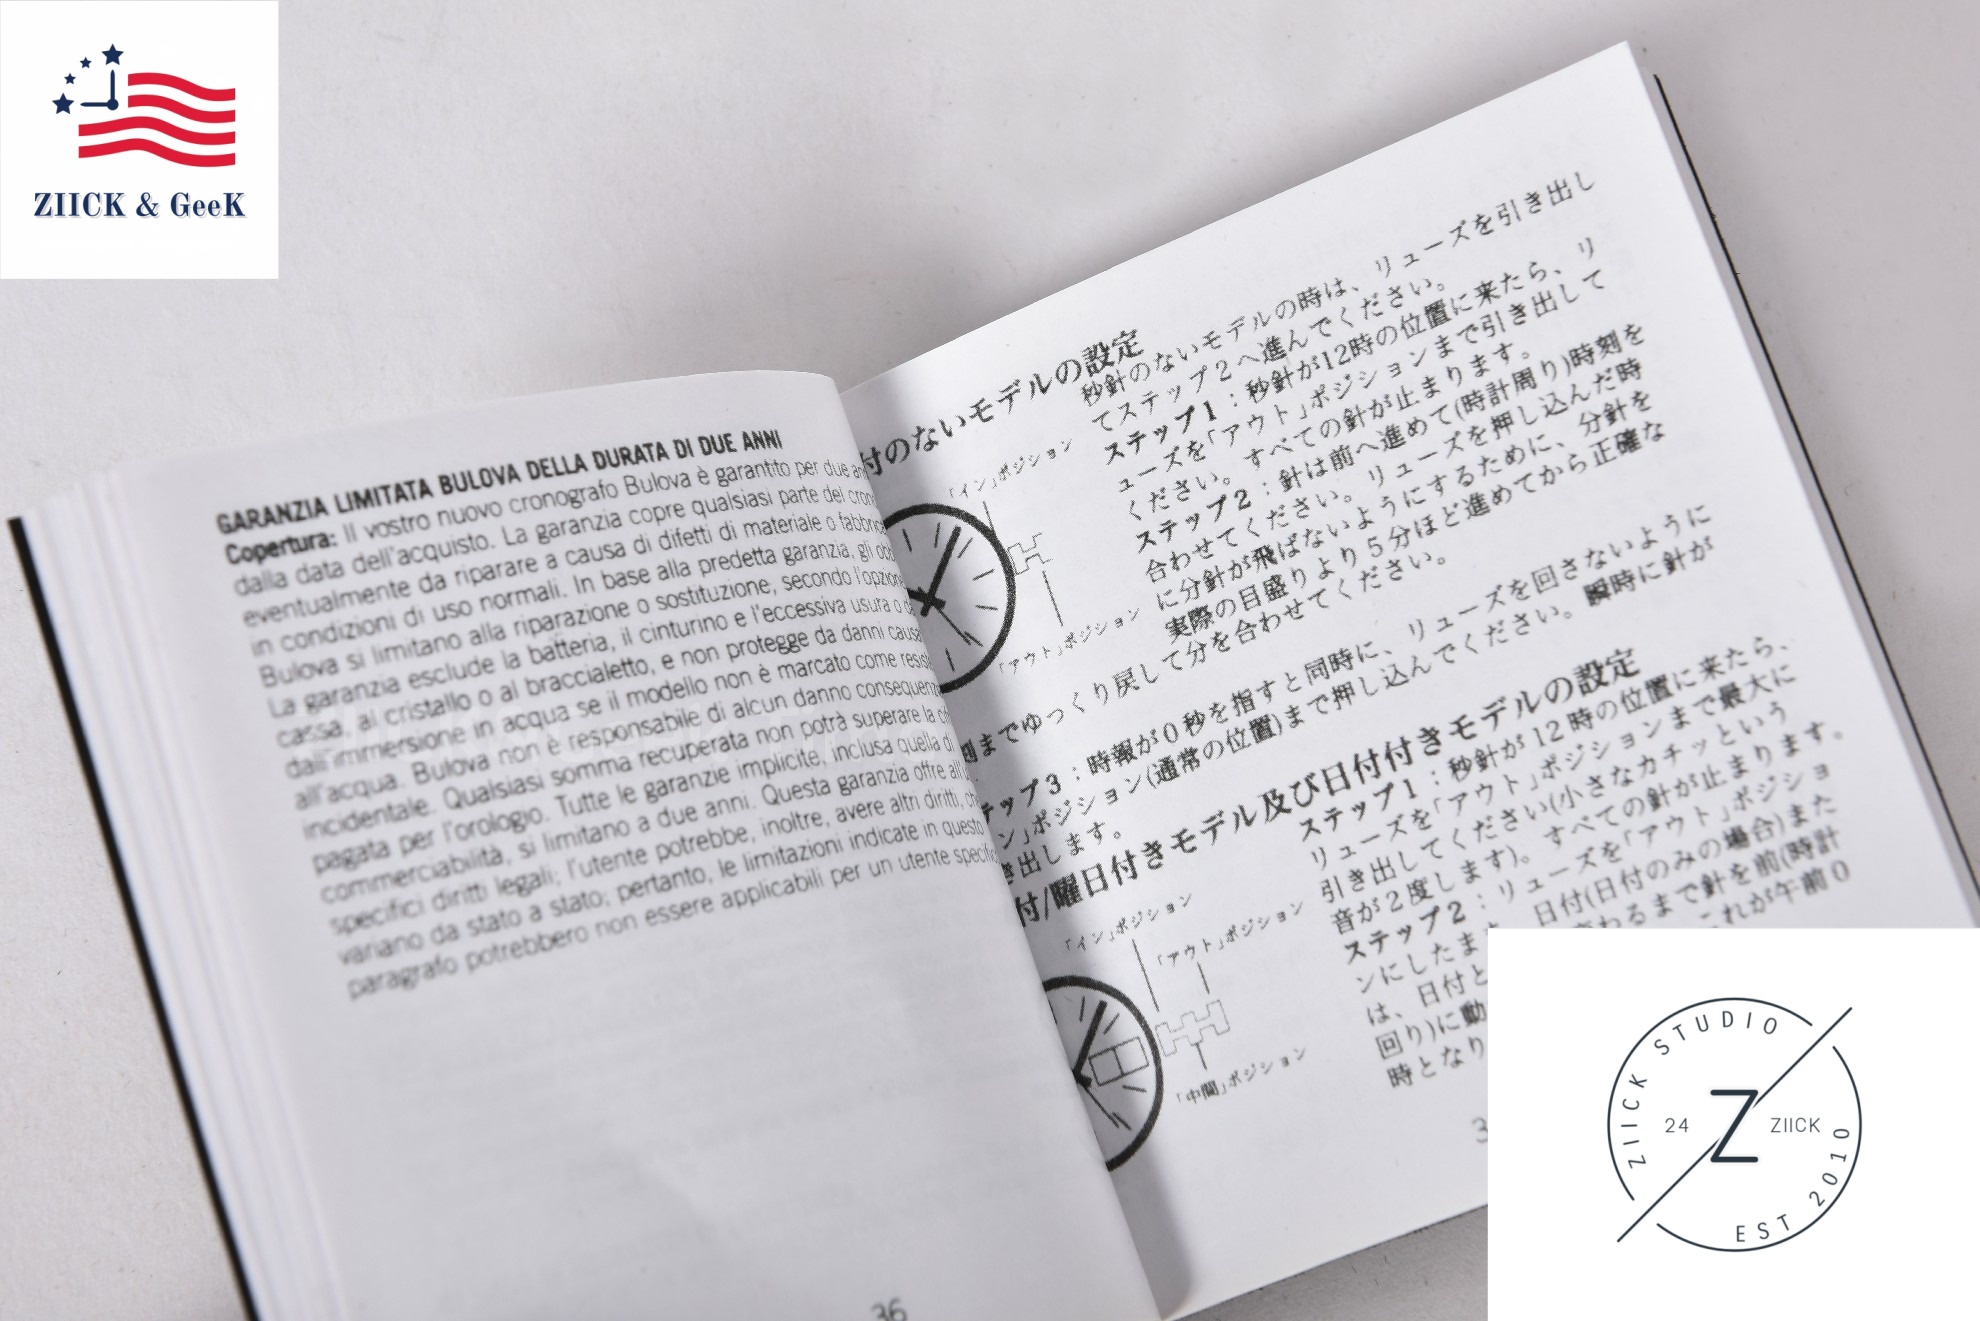 ZIICK & GeeK
GARANZIA LIMITATA BULOVA DELLA DURATA DI DUE ANNI
Copertura: Il vostro nuovo cronografo Bulova è garantito per due
dalla data dell'acquisto. La garanzia copre qualsiasi parte del
eventualmente da riparare a causa di difetti di materiale o
in condizioni di uso normali. In base alla predetta garanzia, gli
Bulova si limitano alla riparazione o sostituzione, secondo
La garanzia esclude la batteria, il cinturino e l'eccessiva usura o
cassa, al cristallo o al braccialetto, e non protegge da danni
dall'immersione in acqua se il modello non è marcato come
all'acqua. Bulova non è responsabile di alcun danno
incidentale. Qualsiasi somma recuperata non potrà superare la
pagata per l'orologio. Tutte le garanzie implicite, inclusa quella di
commerciabilità, si limitano a due anni. Questa garanzia offre
specifici diritti legali; l'utente potrebbe, inoltre, avere altri diritti,
variano da stato a stato; pertanto, le limitazioni indicate in questo
paragrafo potrebbero non essere applicabili per un utente
36
付のないモデルの設定
「イン」ポジション
「アウト」ポジション
秒針のないモデルの時は、リューズを引き出し
てステップ2へ進んでください。
ステップ1：秒針が12時の位置に来たら、リ
ューズを「アウト」ポジションまで引き出して
ください。すべての針が止まります。
ステップ2：針は前へ進めて(時計周り)時刻を
合わせてください。リューズを押し込んだ時
に分針が飛ばないようにするために、分針を
実際の目盛りより5分ほど進めてから正確な
刻までゆっくり戻して分を合わせてください。
テップ3：時報が0秒を指すと同時に、リューズを回さないように
ン」ポジション(通常の位置)まで押し込んでください。瞬時に針が
き出します。
付/曜日付きモデル及び日付付きモデルの設定
「イン」ポジション
「アウト」ポジション
「中間」ポジション
ステップ1：秒針が12時の位置に来たら、
リューズを「アウト」ポジションまで最大に
引き出してください(小さなカチッという
音が2度します)。すべての針が止まります。
ステップ2：リューズを「アウト」ポジショ
ンにしたま 日付(日付のみの場合)また
は、日付と わるまで針を前(時計
回り)に動 れが午前0
時となり
ZIICK STUDIO
24 Z ZIICK
EST 2010